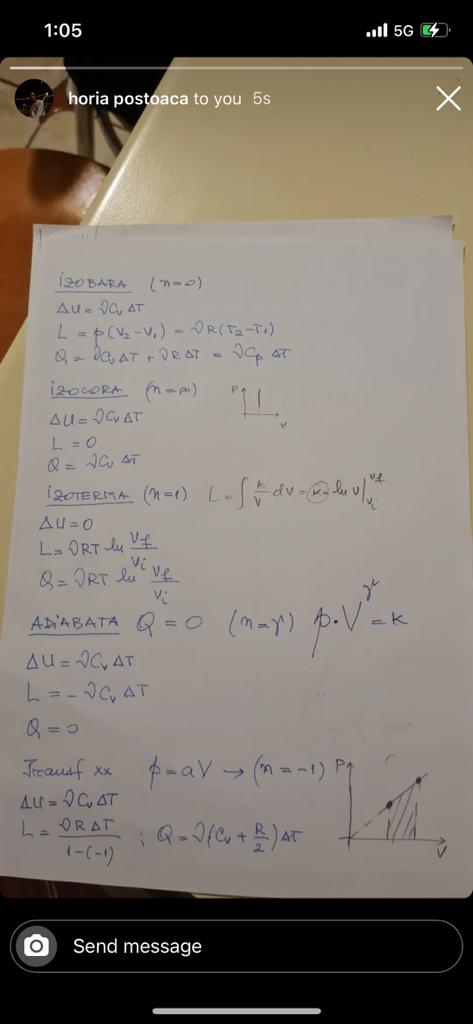 1:05
5G
horia postoaca to you 5s
IZOBARA (n=0)
ΔU = νCv ΔT
L = p(V2-V1) = νR(T2-T1)
Q = νCvΔT + νRΔT = νCp ΔT
IZOCORA (n=∞)
P
V
ΔU = νCvΔT
L = 0
Q = νCv ΔT
IZOTERMA (n=1) L = ∫ k/V dV = k ln V |Vi Vf
ΔU = 0
L = νRT ln Vf/Vi
Q = νRT ln Vf/Vi
ADIABATA Q = 0 (n=γ) p·V^γ = k
ΔU = νCv ΔT
L = - νCv ΔT
Q = 0
Transf xx p = aV → (n = -1)
P
V
ΔU = νCvΔT
L = νRΔT/1-(-1) ; Q = ν(Cv + R/2)ΔT
Send message